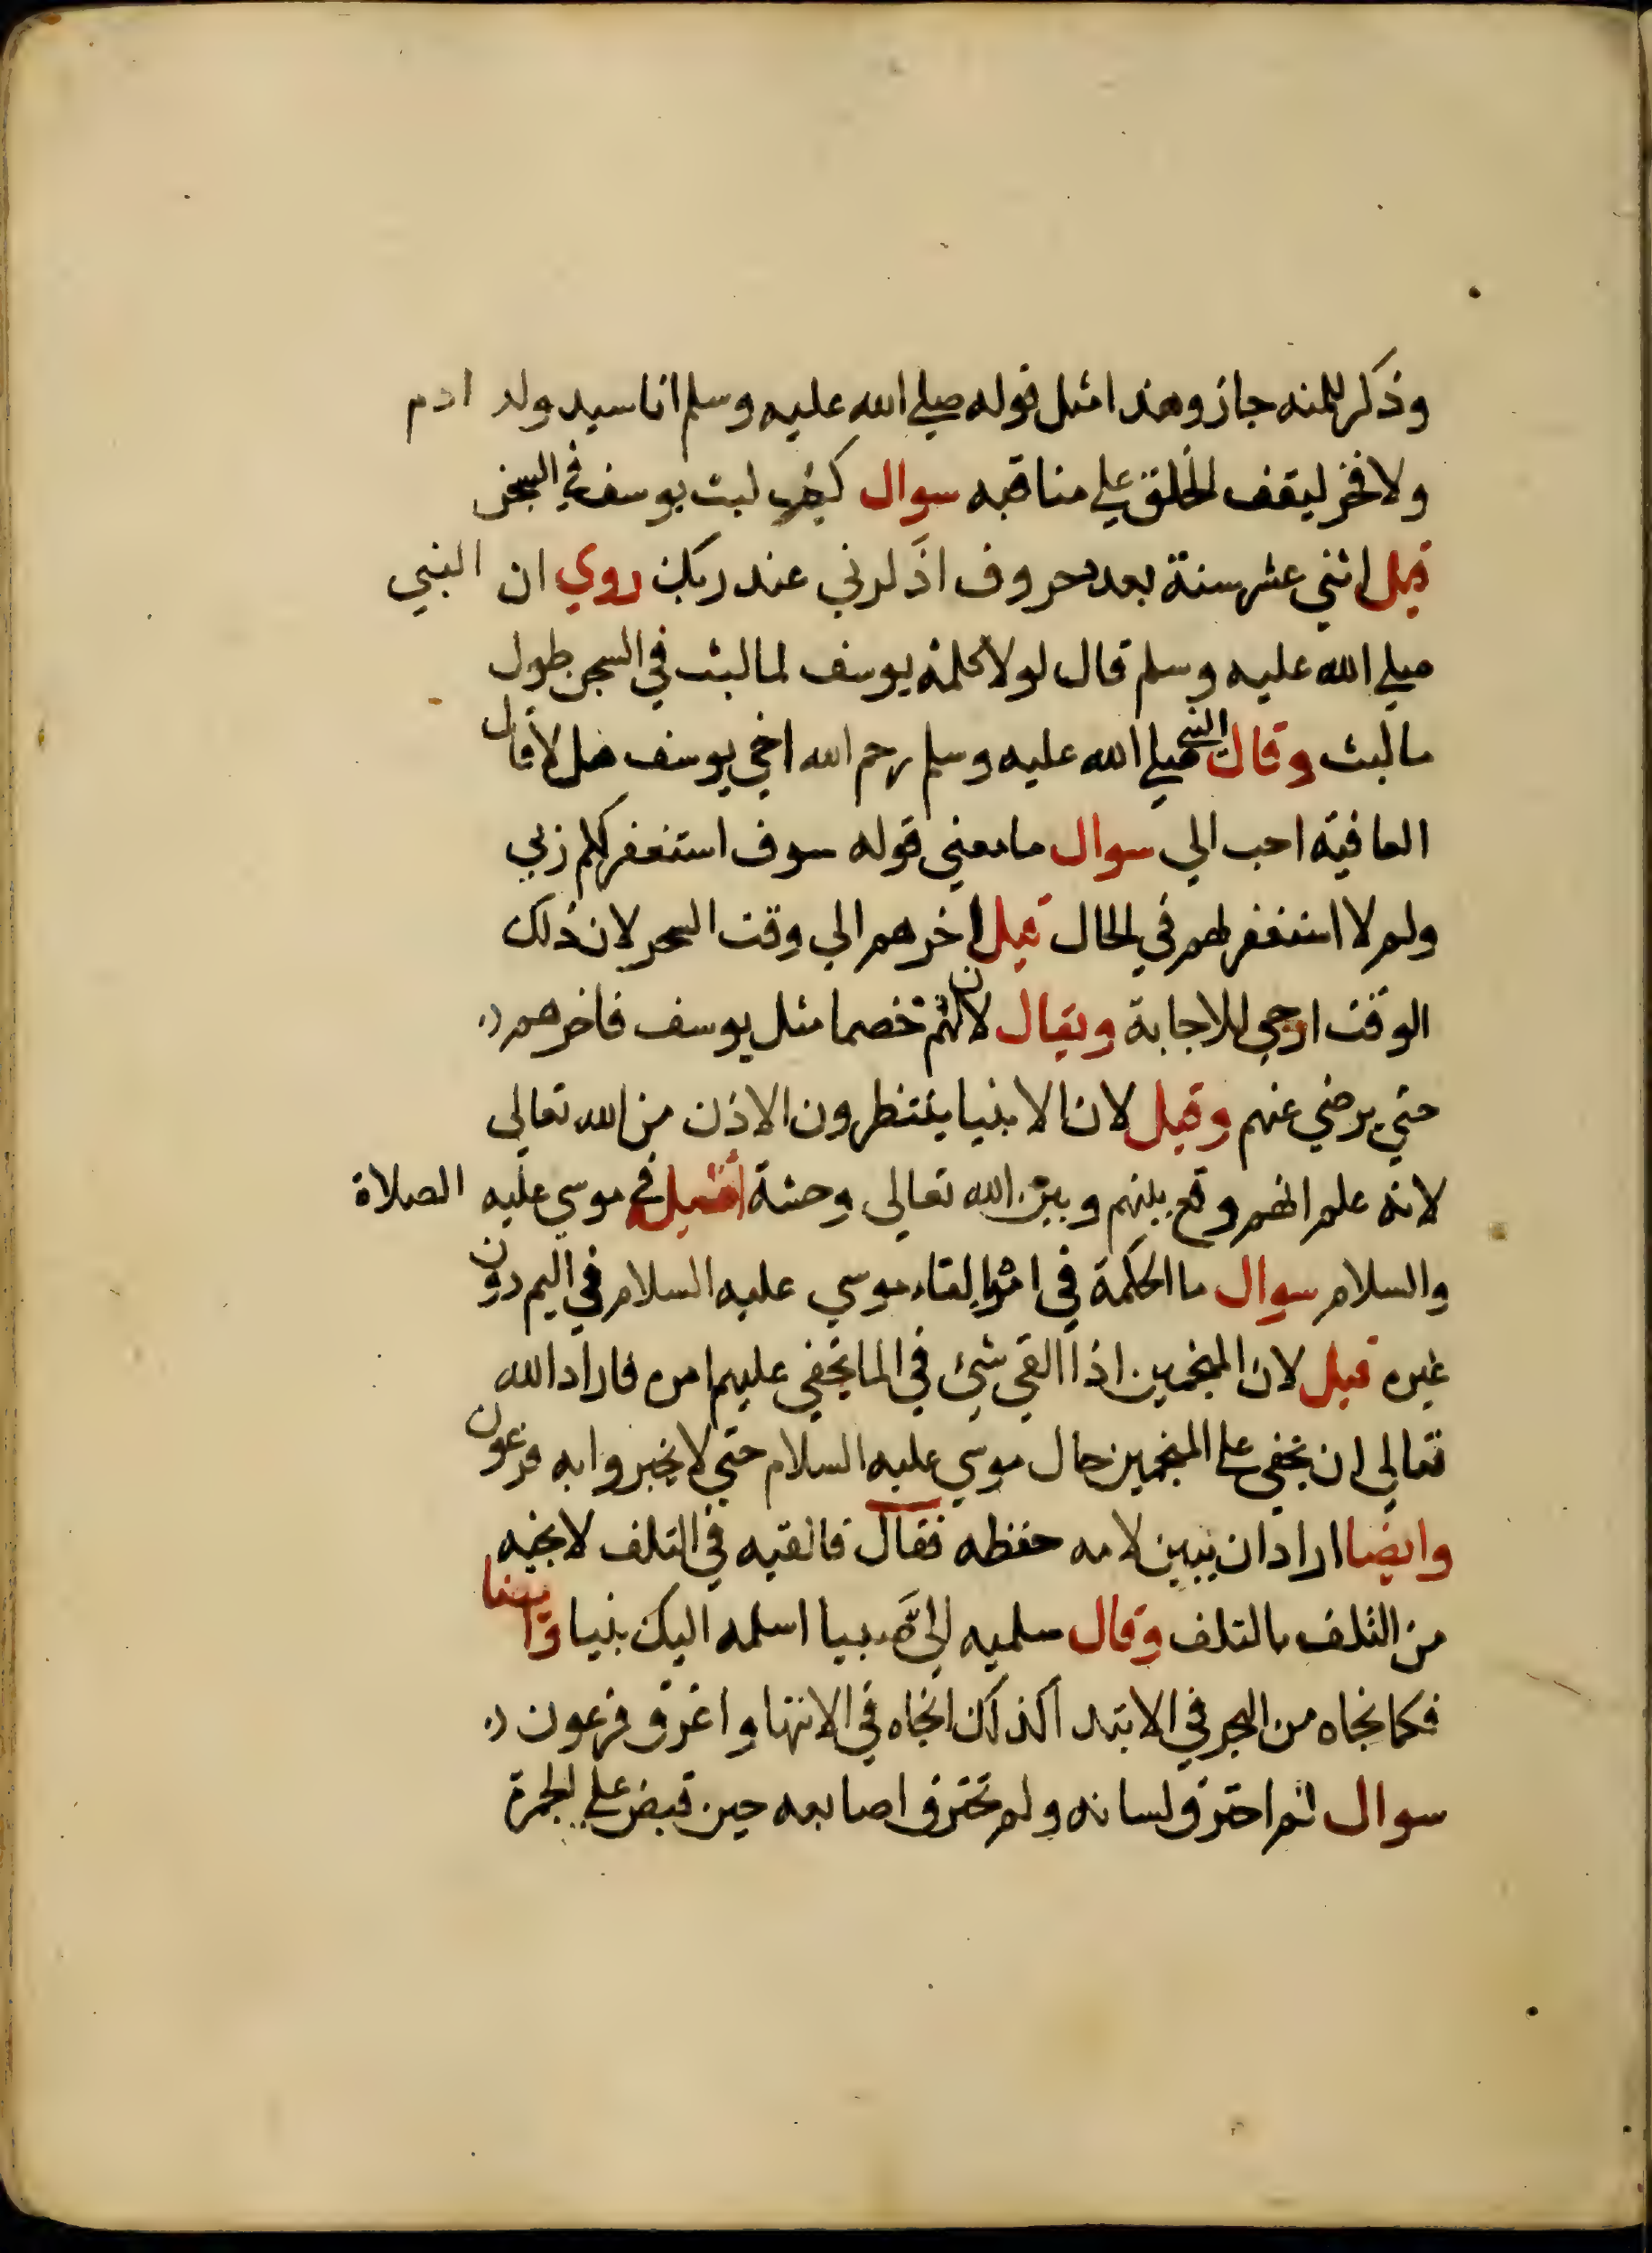 وذكر للمنه جاز وهذا مثل قوله صلي الله عليه وسلم انا سيد ولد ادم
ولا فخر ليقف الخلق علي مناقبه سوال كم لبث يوسف في السجن
قيل اثني عشر سنة بعدد حروف اذكرني عند ربك روي ان النبي
صلي الله عليه وسلم قال لولا كلمة يوسف لما لبث في السجن طول
ما لبث وقال النبي صلي الله عليه وسلم رحم الله اخي يوسف هل لا قال
العافية احب الي سوال ما معني قوله سوف استغفر لكم ربي
ولم لا استغفر لهم في الحال قيل اخرهم الي وقت السحر لان ذلك
الوقت ارجي للاجابة ويقال لان لهم خصما مثل يوسف فاخرهم
حتي يرضي عنهم وقيل لان الانبيا ينتظرون الاذن من الله تعالي
لانه علم انهم وقع بينهم وبين الله تعالي وحشة في موسي عليه الصلاة
والسلام سوال ما الحكمة في القاء موسي عليه السلام في اليم دون
غيره قيل لان المنجمين اذا القي شيئ في الما يخفي عليهم امره فاراد الله
تعالي ان يخفي علي المنجمين حال موسي عليه السلام حتي لا يخبروا به فرعون
وايضا اراد ان يبين لامه حفظه فقال فالقيه في التلف لانجيه
من التلف بالتلف وقال سلميه الي صبيا اسلمه اليك نبيا وايضا
فكما نجاه من البحر في الابتدا كذلك انجاه في الانتها واغرق فرعون
سوال لم احترق لسانه ولم تحترق اصابعه حين قبض علي الجمرة